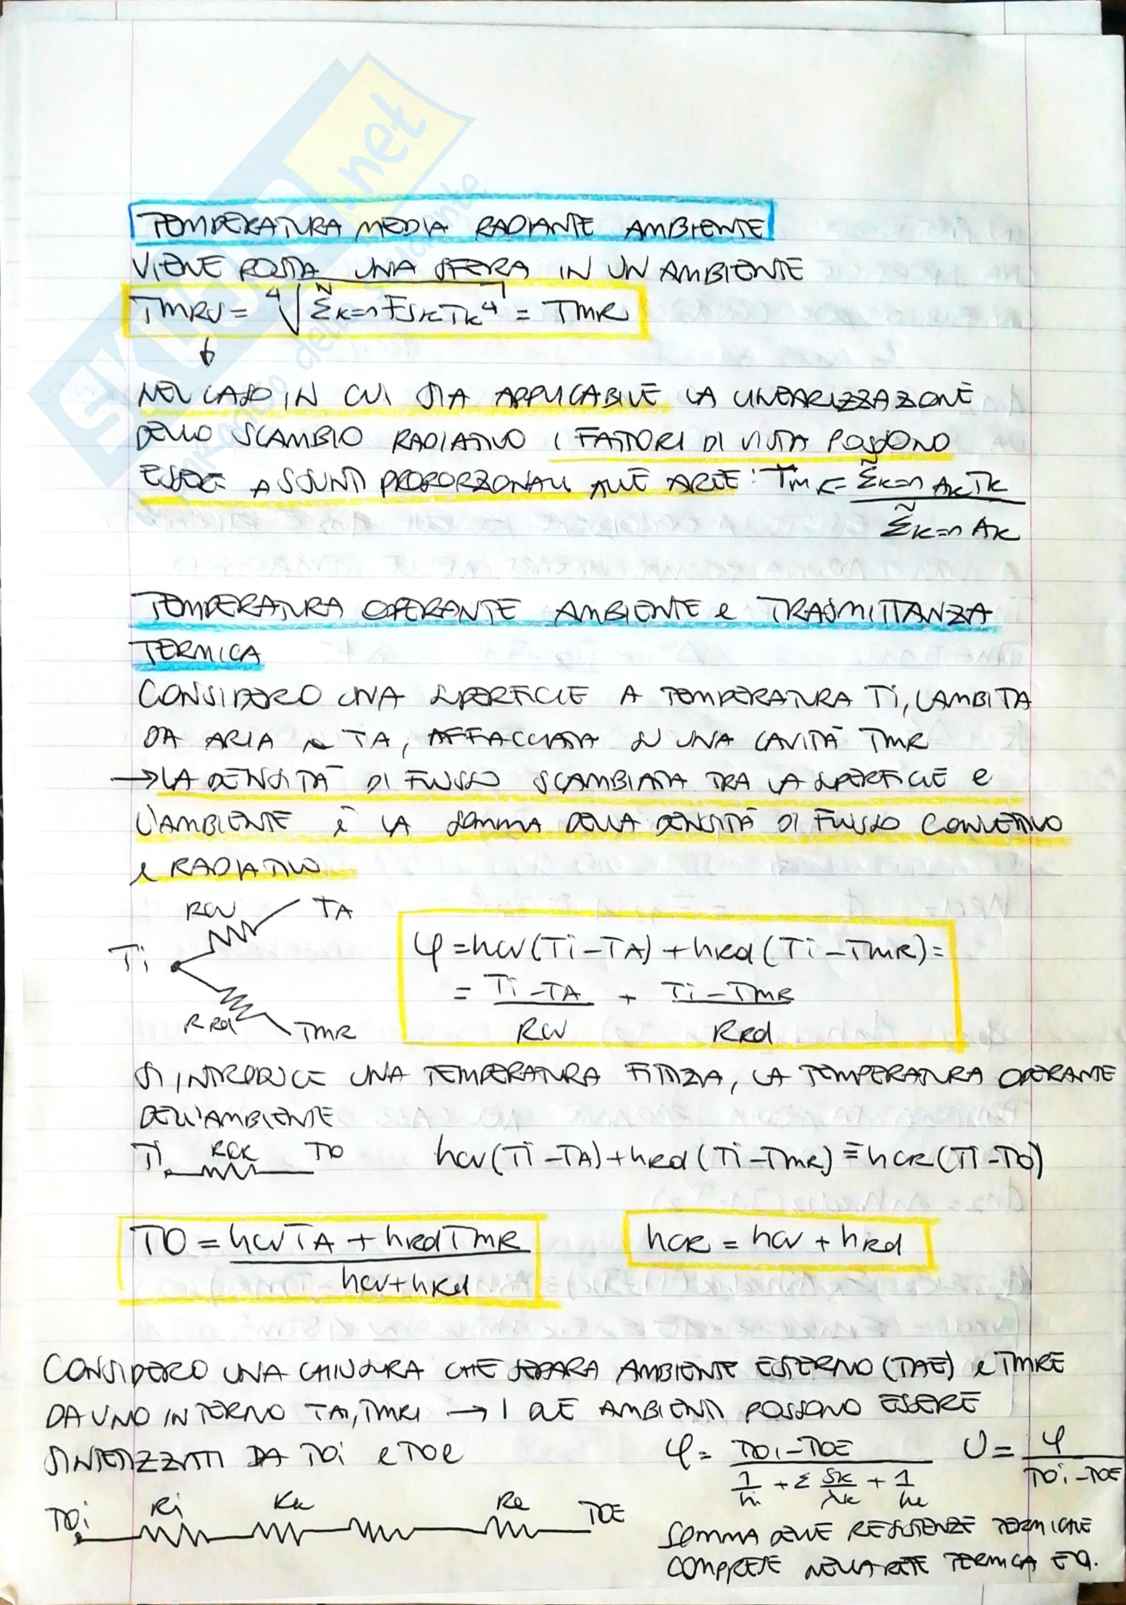 TEMPERATURA MEDIA RADIANTE AMBIENTE
VIENE POSTA UNA SFERA IN UN AMBIENTE
TMRS = ⁴√(Σ^N K=n FSK TK⁴) = TMR
NEL CASO IN CUI SIA APPLICABILE LA LINEARIZZAZIONE
DELLO SCAMBIO RADIATIVO I FATTORI DI VISTA POSSONO
ESSERE ASSUNTI PROPORZIONALI ALLE AREE: TMR = Σ K=n AK TK / Σ K=n AK
TEMPERATURA OPERANTE AMBIENTE e TRASMITTANZA
TERMICA
CONSIDERO UNA SUPERFICIE A TEMPERATURA Ti, LAMBITA
DA ARIA a TA, AFFACCIATA SU UNA CAVITÀ TMR
→ LA DENSITÀ DI FLUSSO SCAMBIATA TRA LA SUPERFICIE e
L'AMBIENTE è LA SOMMA DELLA DENSITÀ DI FLUSSO CONVETTIVO
e RADIATIVO
RCV TA
Ti
RRd TMR
φ = hcv(Ti-TA) + hRd(Ti-TMR) =
= Ti-TA / RCV + Ti-TMR / RRd
SI INTRODUCE UNA TEMPERATURA FITTIZIA, LA TEMPERATURA OPERANTE
DELL'AMBIENTE
Ti RCR TO hcv(Ti-TA)+hRd(Ti-TMR) ≡ hCR(Ti-TO)
TO = hcvTA + hRdTMR / hcv+hRd
hCR = hcv + hRd
CONSIDERO UNA CHIUSURA CHE SEPARA AMBIENTE ESTERNO (TAE) e TMRE
DA UNO INTERNO TAi, TMRi → I DUE AMBIENTI POSSONO ESSERE
SINTETIZZATI DA TOi e TOe
φ = TOi-TOE / 1/hi + Σ SK/λK + 1/he U = φ / TOi-TOE
TOi Ri Kk Re TOE
SOMMA DELLE RESISTENZE TERMICHE
COMPRESE NELLA RETE TERMICA EQ.